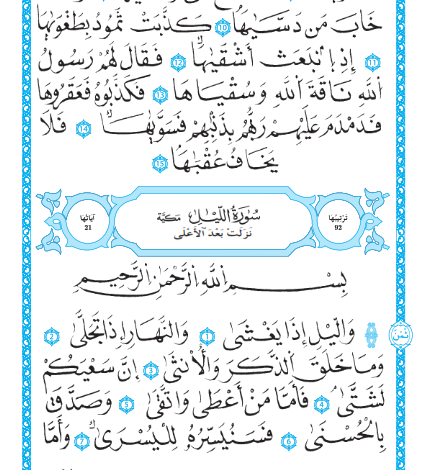 خَابَ مَن دَسَّىٰهَا 10 كَذَّبَتْ ثَمُودُ بِطَغْوَىٰهَا
11 إِذِ اِنۢبَعَثَ أَشْقَىٰهَا 12 فَقَالَ لَهُمْ رَسُولُ
اُللَّهِ نَاقَةَ اَللَّهِ وَسُقْيَاهَا 13 فَكَذَّبُوهُ فَعَقَرُوهَا
فَدَمْدَمَ عَلَيْهِمْ رَبُّهُم بِذَنۢبِهِمْ فَسَوَّىٰهَا 14 فَلَا
يَخَافُ عُقْبَٰهَا 15
ترتيبها 92
سُورَةُ اللَّيْلِ مَكيَّة
نَزَلَتْ بَعْدَ الأَعْلَى
آياتها 21
بِسْمِ اللَّهِ الرَّحْمَٰنِ الرَّحِيمِ
ثمن
وَالَّيْلِ إِذَا يَغْشَىٰ 1 وَالنَّهَارِ إِذَا تَجَلَّىٰ 2
وَمَا خَلَقَ اَلذَّكَرَ وَالْأُنثَىٰ 3 إِنَّ سَعْيَكُمْ
لَشَتَّىٰ 4 فَأَمَّا مَنْ أَعْطَىٰ وَاتَّقَىٰ 5 وَصَدَّقَ
بِالْحُسْنَىٰ 6 فَسَنُيَسِّرُهُۥ لِلْيُسْرَىٰ 7 وَأَمَّا